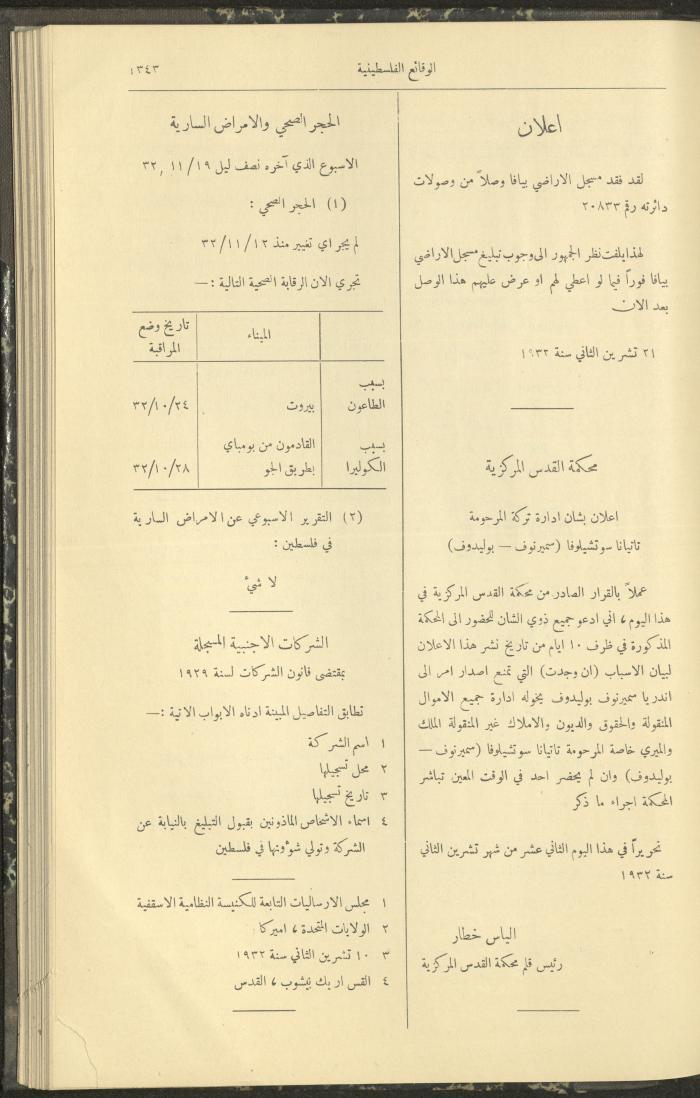 الوقائع الفلسطينية
١٣٤٣
اعلان
لقد فقد مسجل الاراضي بيافا وصلاً من وصولات
دائرته رقم ٢٠٨٣٣
لهذا يلفت نظر الجمهور الى وجوب تبليغ مسجل الاراضي
بيافا فوراً فيما لو اعطي لهم او عرض عليهم هذا الوصل
بعد الان
٢١ تشرين الثاني سنة ١٩٣٢
محكمة القدس المركزية
اعلان بشان ادارة تركة المرحومة
تاتيانا سوتشيلوفا (سميرنوف — بوليدوف)
عملاً بالقرار الصادر من محكمة القدس المركزية في
هذا اليوم ، اني ادعو جميع ذوي الشان للحضور الى المحكمة
المذكورة في ظرف ١٠ ايام من تاريخ نشر هذا الاعلان
لبيان الاسباب (ان وجدت) التي تمنع اصدار امر الى
اندريا سميرنوف بوليدوف يخوله ادارة جميع الاموال
المنقولة والحقوق والديون والاملاك غير المنقولة الملك
والميري خاصة المرحومة تاتيانا سوتشيلوفا (سميرنوف —
بوليدوف) وان لم يحضر احد في الوقت المعين تباشر
المحكمة اجراء ما ذكر
تحريراً في هذا اليوم الثاني عشر من شهر تشرين الثاني
سنة ١٩٣٢
الياس خطار
رئيس قلم محكمة القدس المركزية
الحجر الصحي والامراض السارية
الاسبوع الذي آخره نصف ليل ١٩/ ١١/ ٣٢
(١) الحجر الصحي :
لم يجر اي تغيير منذ ٣٢/١١/١٢
تجري الان الرقابة الصحية التالية :—
الميناء
تاريخ وضع
المراقبة
بسبب
الطاعون
بيروت
٣٢/١٠/٢٤
بسبب
الكوليرا
القادمون من بومباي
بطريق الجو
٣٢/١٠/٢٨
(٢) التقرير الاسبوعي عن الامراض السارية
في فلسطين :
لا شيء
الشركات الاجنبية المسجلة
بمقتضى قانون الشركات لسنة ١٩٢٩
تطابق التفاصيل المبينة ادناه الابواب الاتية :—
١ اسم الشركة
٢ محل تسجيلها
٣ تاريخ تسجيلها
٤ اسماء الاشخاص الماذونين بقبول التبليغ بالنيابة عن
الشركة وتولي شوءونها في فلسطين
١ مجلس الارساليات التابعة للكنيسة النظامية الاسقفية
٢ الولايات المتحدة ، اميركا
٣ ١٠ تشرين الثاني سنة ١٩٣٢
٤ القس اريك بيشوب ، القدس